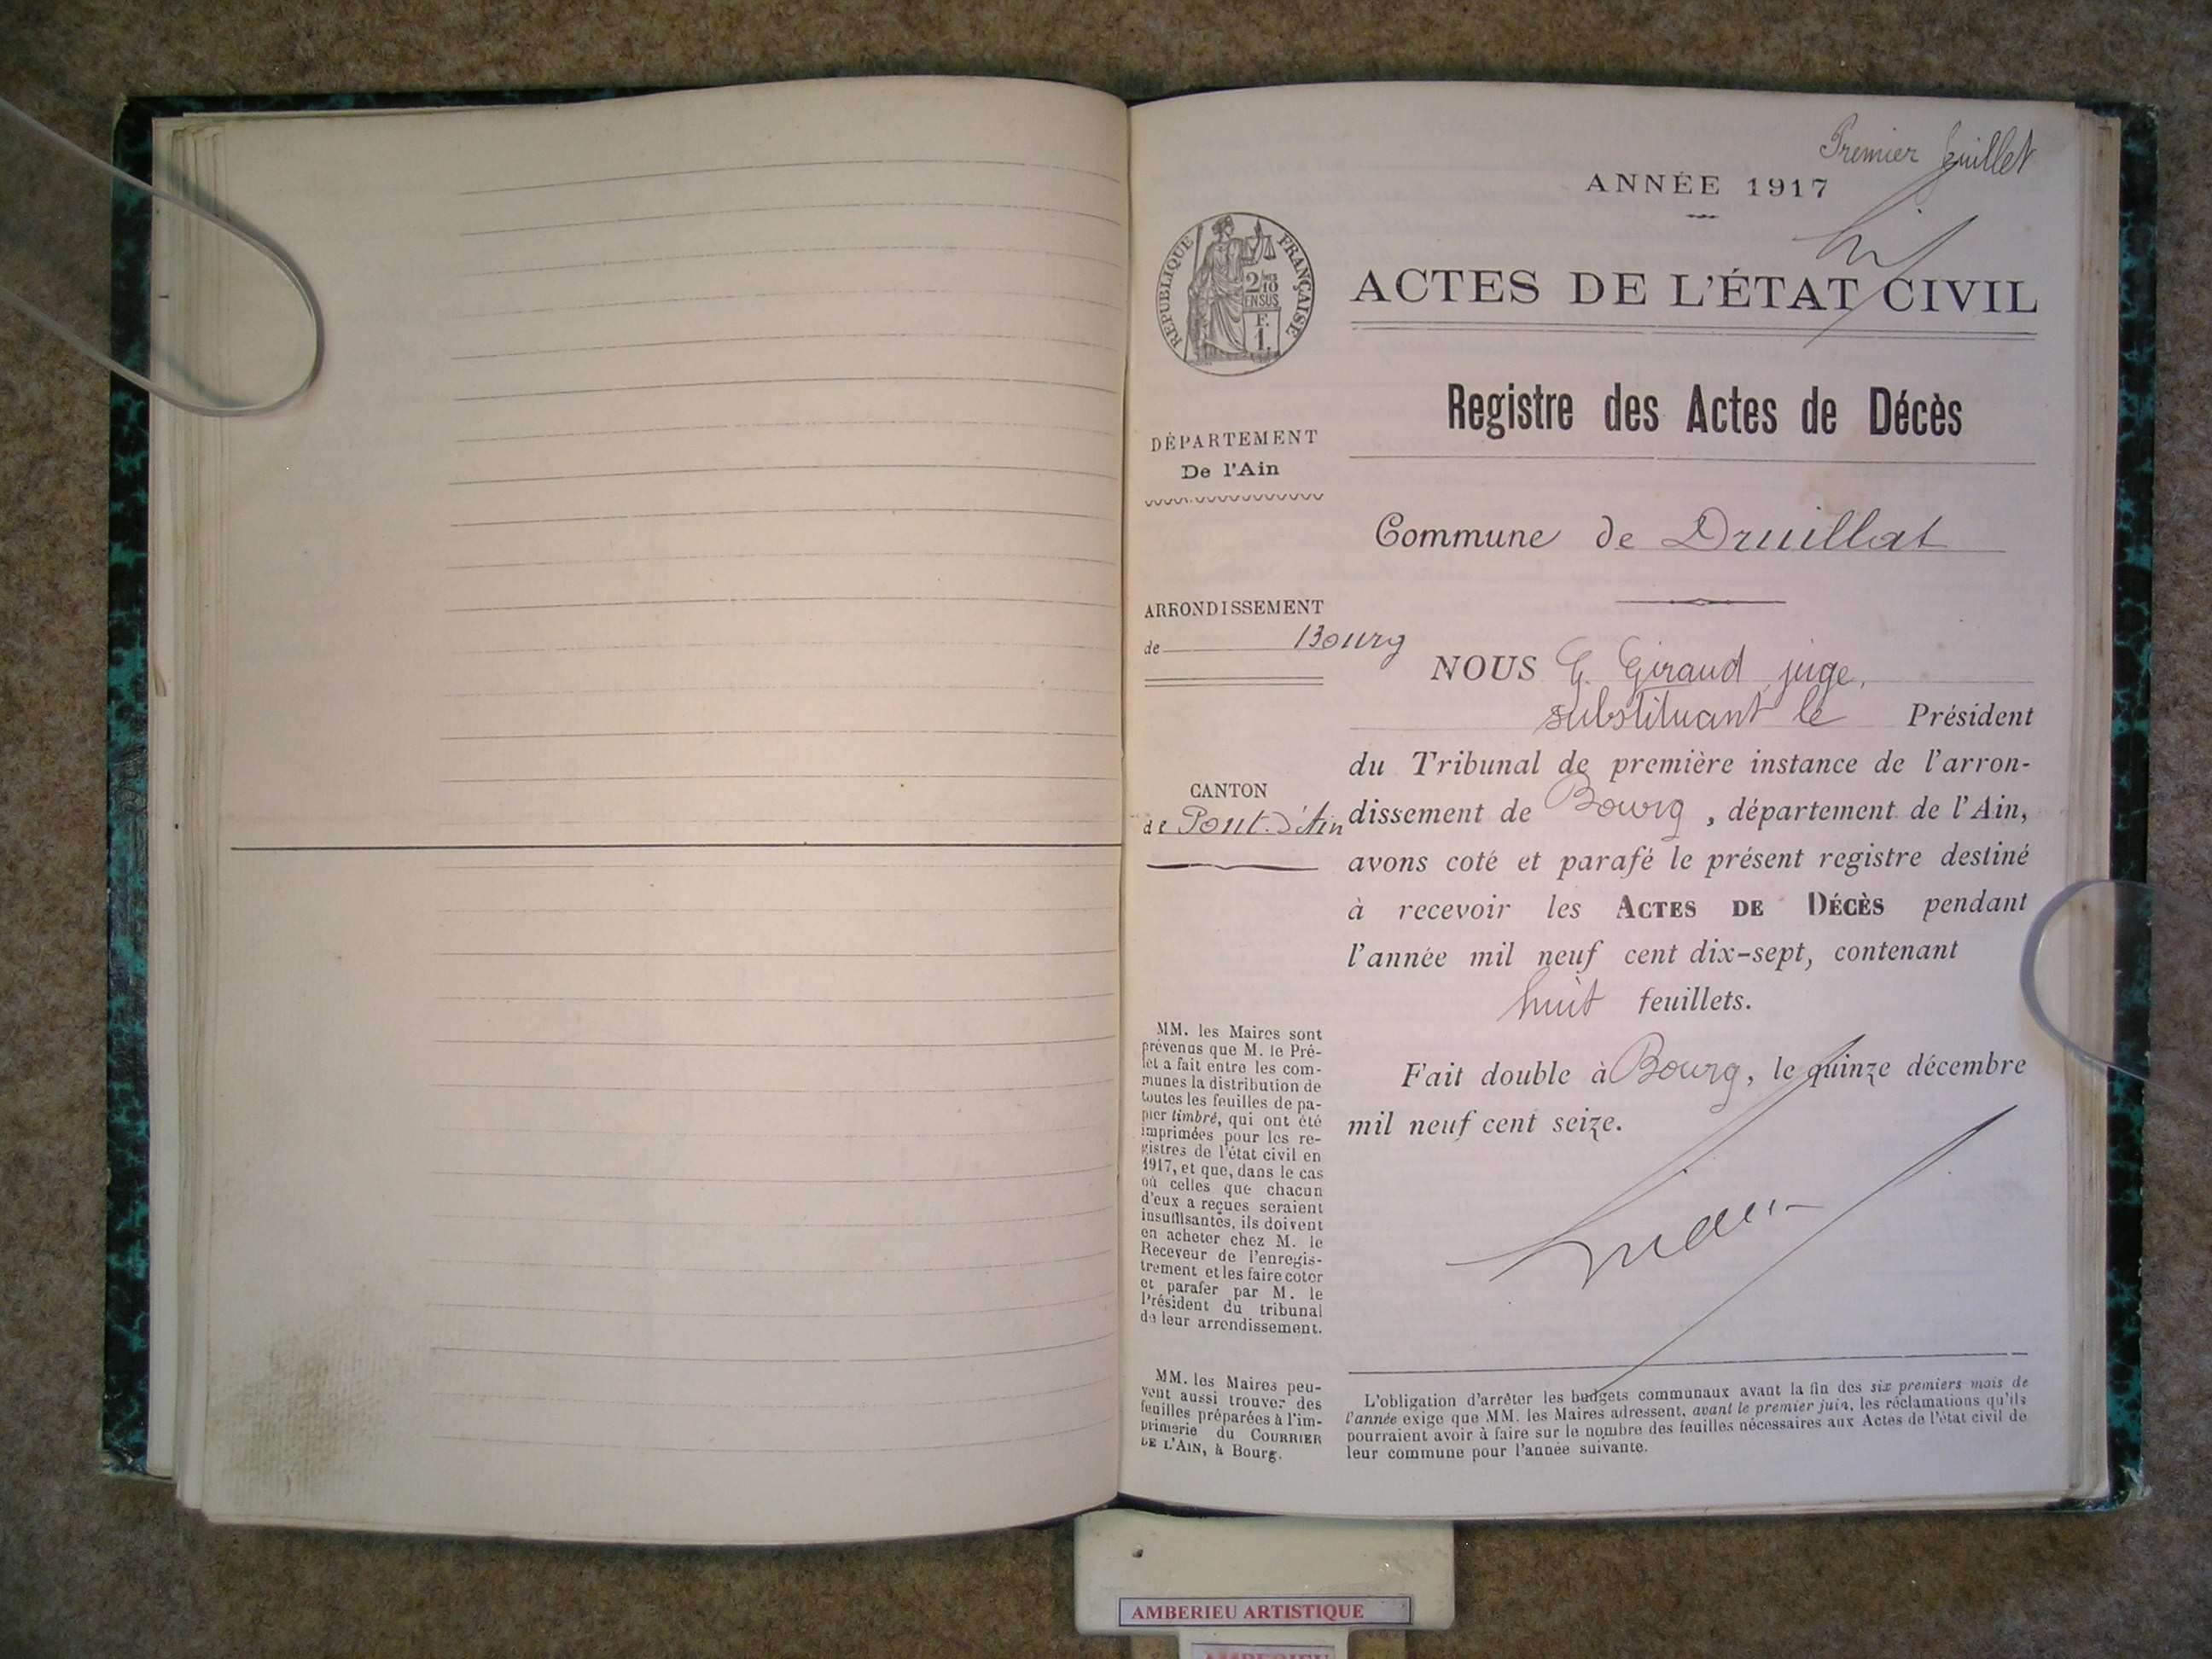 Premier feuillet
ANNÉE 1917
ACTES DE L'ÉTAT CIVIL
RÉPUBLIQUE FRANÇAISE
2/10
EN SUS
F.
1.
Registre des Actes de Décès
DÉPARTEMENT
De l'Ain
Commune de Druillat
ARRONDISSEMENT
de Bourg
NOUS G. Giraud juge,
substituant le Président
du Tribunal de première instance de l'arron-
dissement de Bourg, département de l'Ain,
avons coté et parafé le présent registre destiné
à recevoir les ACTES DE DÉCÈS pendant
l'année mil neuf cent dix-sept, contenant
huit feuillets.
Fait double à Bourg, le quinze décembre
mil neuf cent seize.
CANTON
de Pont-d'Ain
MM. les Maires sont
prévenus que M. le Pré-
fet a fait entre les com-
munes la distribution de
toutes les feuilles de pa-
pier timbré, qui ont été
imprimées pour les re-
gistres de l'état civil en
1917, et que, dans le cas
où celles que chacun
d'eux a reçues seraient
insuffisantes, ils doivent
en acheter chez M. le
Receveur de l'enregis-
trement et les faire coter
et parafer par M. le
Président du tribunal
de leur arrondissement.
MM. les Maires peu-
vent aussi trouver des
feuilles préparées à l'im-
primerie du COURRIER
DE L'AIN, à Bourg.
L'obligation d'arrêter les budgets communaux avant la fin des six premiers mois de
l'année exige que MM. les Maires adressent, avant le premier juin, les réclamations qu'ils
pourraient avoir à faire sur le nombre des feuilles nécessaires aux Actes de l'état civil de
leur commune pour l'année suivante.
AMBERIEU ARTISTIQUE
AMBERIEU